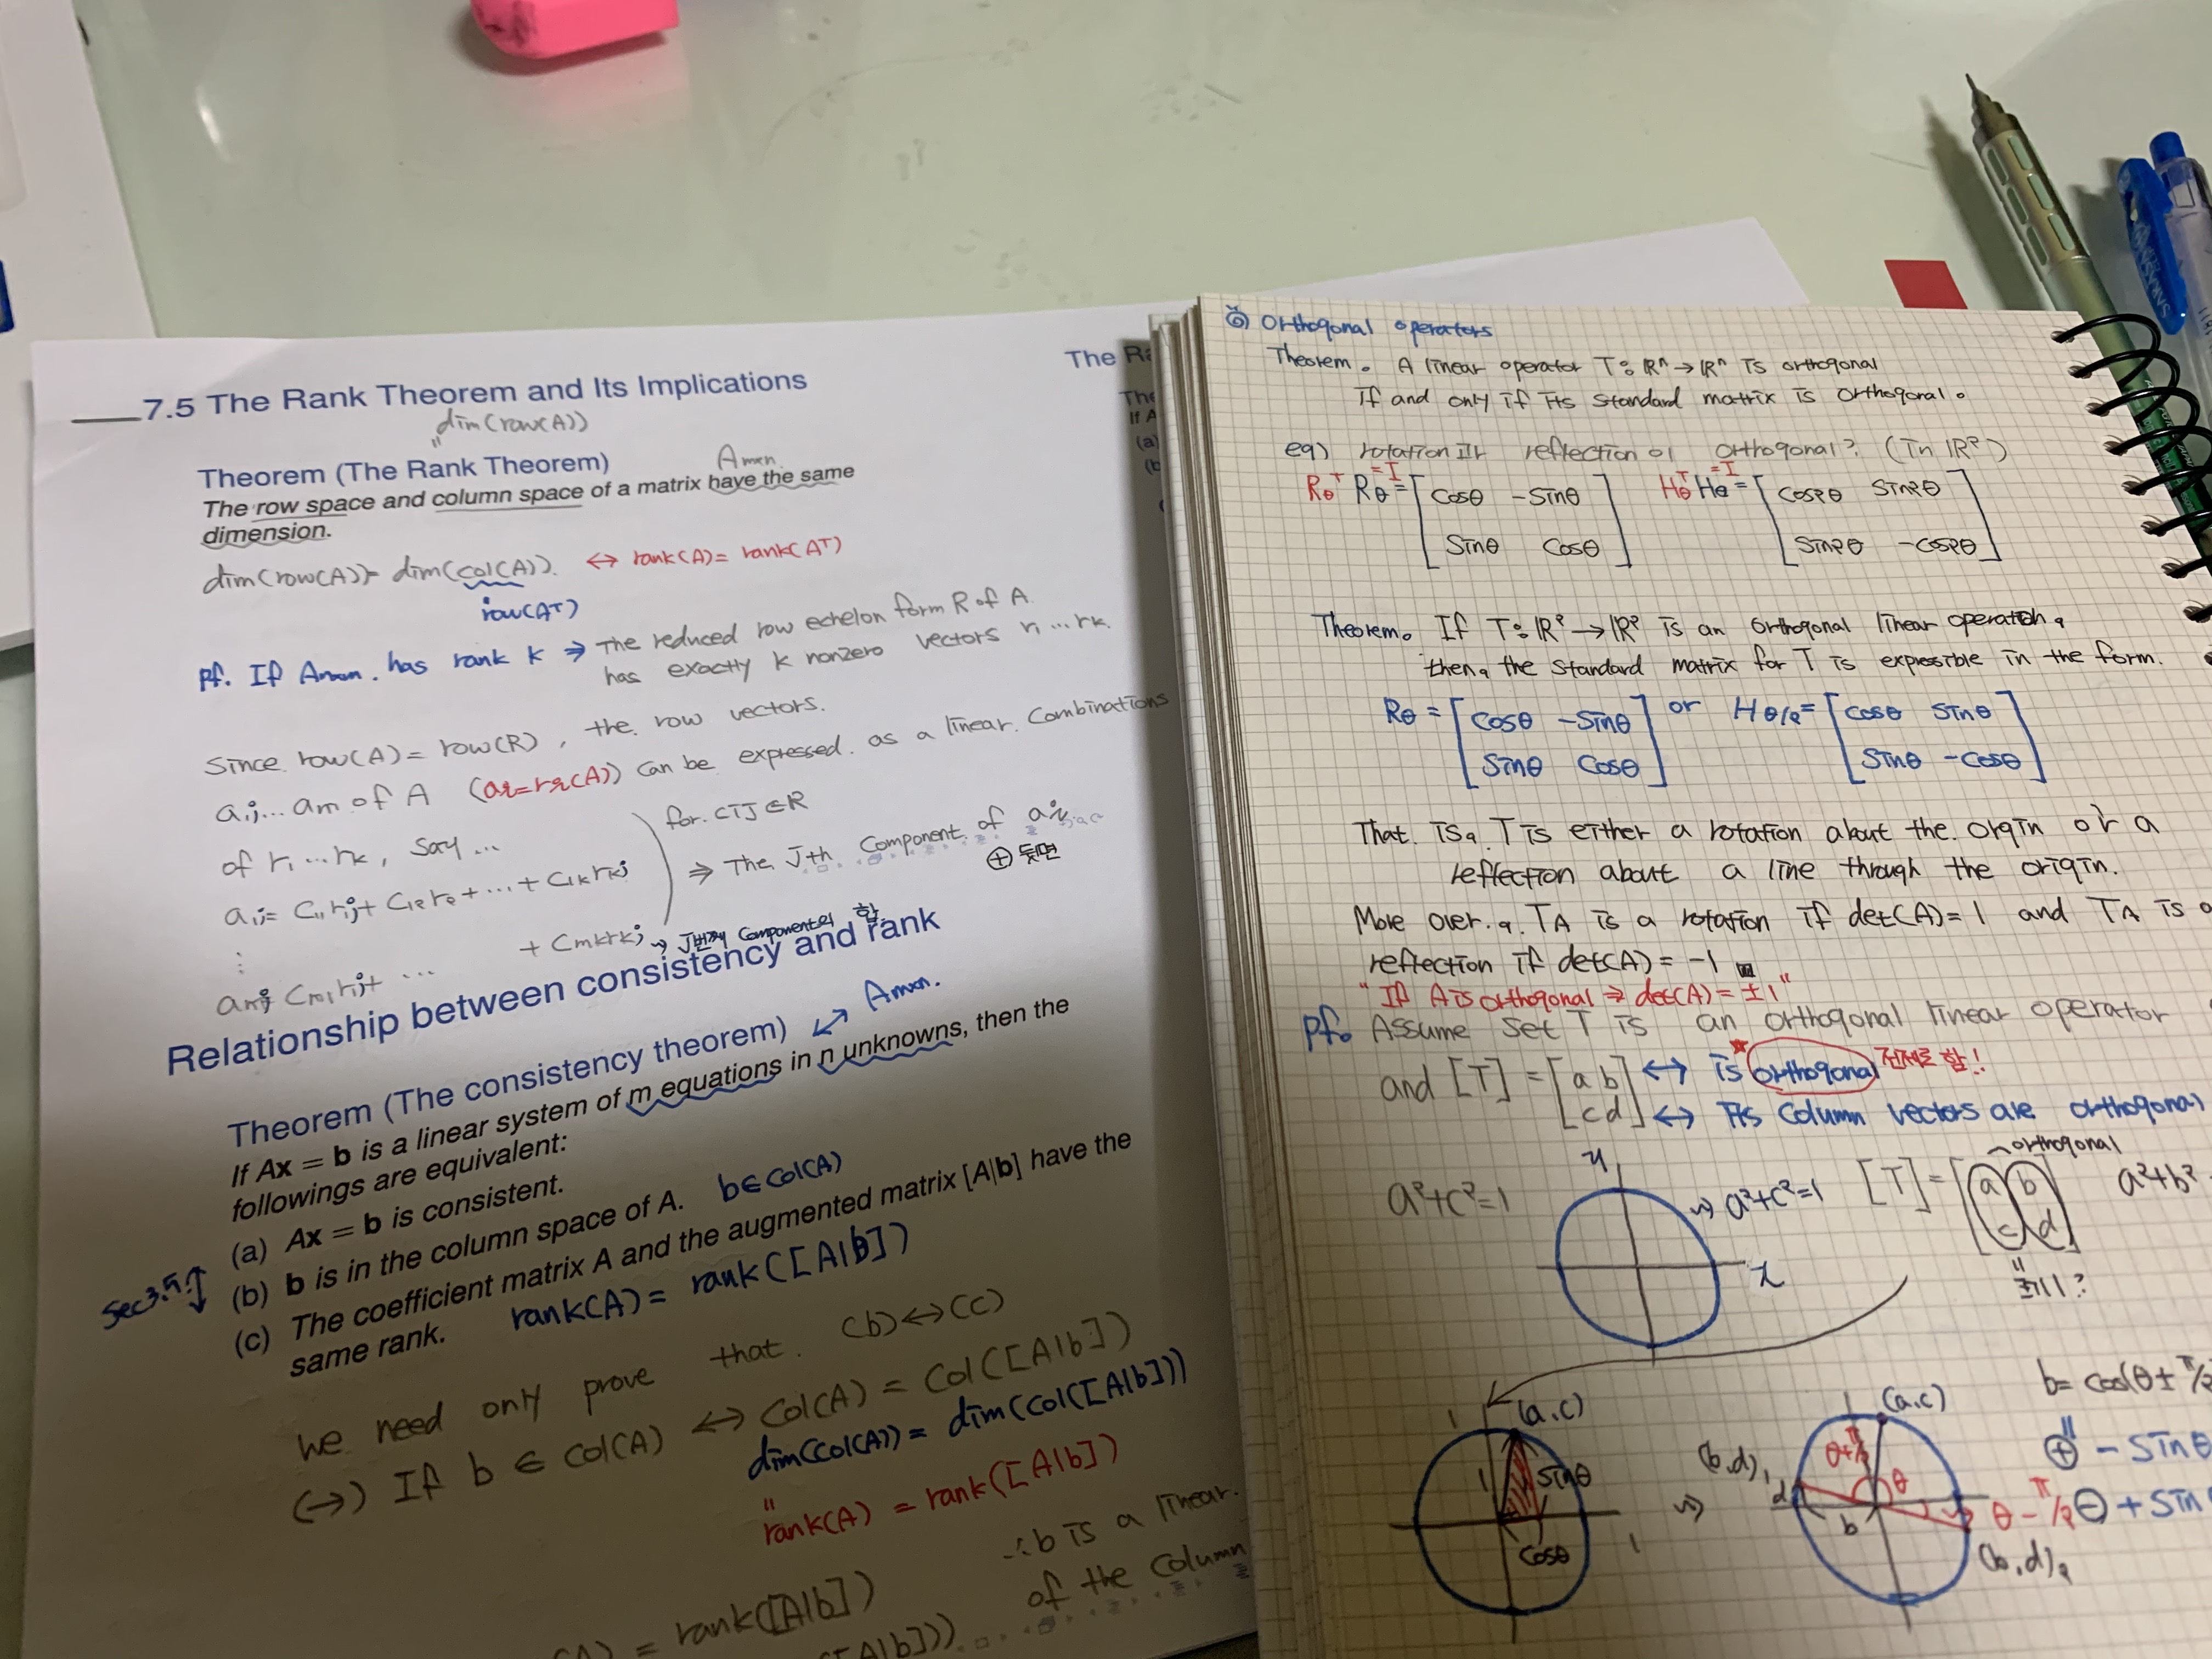 7.5 The Rank Theorem and Its Implications
dim(row(A))
"
Theorem (The Rank Theorem)
Amxn
The row space and column space of a matrix have the same
dimension.
dim(row(A))= dim(col(A)). ↔ rank(A)= rank(AT)
row(AT)
Pf. If Amxn. has rank k ⇒ The reduced row echelon form R of A.
has exactly k nonzero vectors r1 ... rk.
Since row(A)= row(R), the row vectors.
of A can be expressed. as a linear. Combinations
of r1 ... rk, say ...
for. cij ∈R
⇒ The Jth. Component. of
⊕ 뒷면
+ Cmkrkj
J번째 Component의 합
Relationship between consistency and rank
Theorem (The consistency theorem) ↔ Amxn.
If Ax = b is a linear system of m equations in n unknowns, then the
followings are equivalent:
(a) Ax = b is consistent.
(b) b is in the column space of A. b∈Col(A)
(c) The coefficient matrix A and the augmented matrix [A|b] have the
same rank. rank(A)= rank([A|b])
Sec3.5
we need only prove that. (b)↔(c)
(→) If b ∈ col(A) ↔ Col(A) = Col([A|b])
dim(col(A)) = dim(col([A|b]))
"
rank(A) = rank([A|b])
∴b is a linear.
of the column
= rank([A|b])
The Ra
The
If A
(a)
(b
⑥ Orthogonal operators
Theorem. A linear operator T: ℝn → ℝn is orthogonal
if and only if its standard matrix is orthogonal.
eg) rotation과 reflection이 orthogonal? (in ℝ2)
RθT Rθ = [cosθ -sinθ] HθT Hθ = [cos2θ sin2θ]
=I =I
[sinθ cosθ] [sin2θ -cos2θ]
Theorem. If T: ℝ2 → ℝ2 is an orthogonal linear operation,
then, the standard matrix for T is expressible in the form.
Rθ = [cosθ -sinθ] or Hθ/2 = [cosθ sinθ]
[sinθ cosθ] [sinθ -cosθ]
That. is, T is either a rotation about the. orgin or a
reflection about a line through the origin.
More over. , TA is a rotation if det(A)= 1 and TA is a
reflection if det(A) = -1
"If A is orthogonal ⇒ det(A) = ±1"
Pf. Assume set T is an orthogonal linear operator
and [T] = [a b] ↔ is orthogonal 전제로 함!
[c d] ↔ Its column vectors are orthogonal
orthogonal
a²+c²=1 y a²+c²=1 [T]= [a b] a²+b²
[c d]
x
b= cos(θ±π/2
(a.c) (a.c)
1 sinθ (b.d)1 θ+π/2 θ ⊕ - sinθ
d b θ-π/2 ⊖ + sin
cosθ 1 (b.d)2